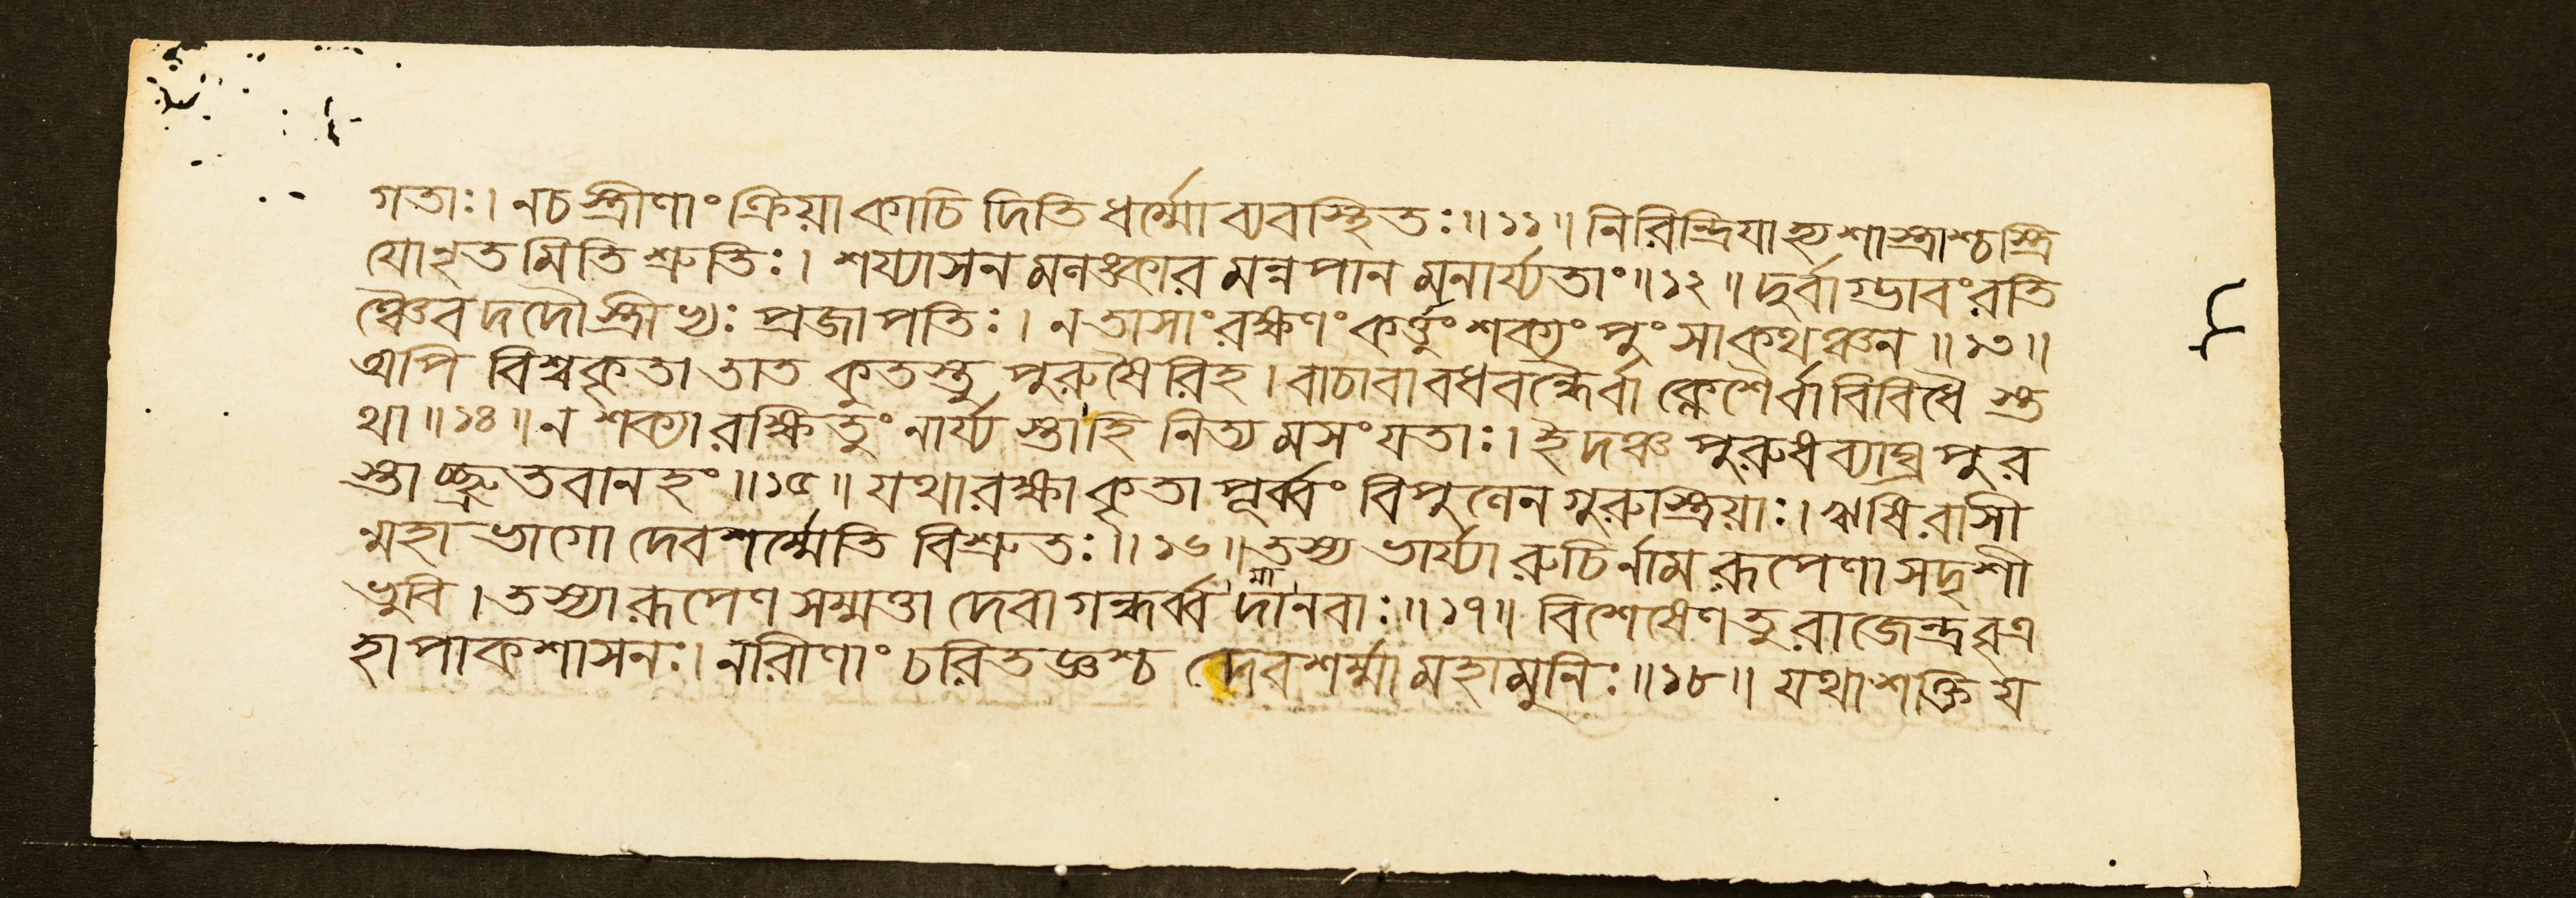 গতাঃ। নচস্ত্রীণাং ক্রিয়া কাচি দিতি ধর্ম্মো ব্যবস্থিতঃ॥১১॥ নিরিন্দ্রিযাহ্যশাস্ত্রাশ্চস্ত্রি
যোঽনৃতমিতি শ্রুতিঃ। শয্যাসন মলঙ্কার মন্নপান মনার্য্যতাং॥১২॥ দুর্বাগ্ভাবং রতি
ঞ্চৈব দদৌ স্ত্রীভ্যঃ প্রজাপতিঃ। ন তাসাং রক্ষণং কর্ত্তুং শক্যং পুংসা কথঞ্চন॥১৩॥
অপি বিশ্বকৃতা তাত কুতস্তু পুরুষৈ রিহ। বাচাবা বধবন্ধৈর্বা ক্লেশৈর্বা বিবিধৈ স্ত
থা॥১৪॥ ন শক্যা রক্ষিতুং নার্য্য স্তাহি নিত্য মসংযতাঃ। ইদঞ্চ পুরুষব্যাঘ্র পুর
স্তাচ্ছ্রুতবানহং॥১৫॥ যথা রক্ষা কৃতা পূর্ব্বং বিপুলেন গুরুস্ত্রিয়াঃ। ঋষি রাসী
ন্মহাভাগো দেবশর্ম্মেতি বিশ্রুতঃ॥১৬॥ তস্য ভার্য্যা রুচির্নাম রূপেণাসদৃশী
ভুবি। তস্যা রূপেণ সম্মত্তা দেবা গন্ধর্ব্ব দানবাঃ॥১৭॥ বিশেষেণ তু রাজেন্দ্র বৃত্র
হা পাকশাসনঃ। নারীণাং চরিতজ্ঞশ্চ দেবশর্ম্মা মহামুনিঃ॥১৮॥ যথাশক্তি য